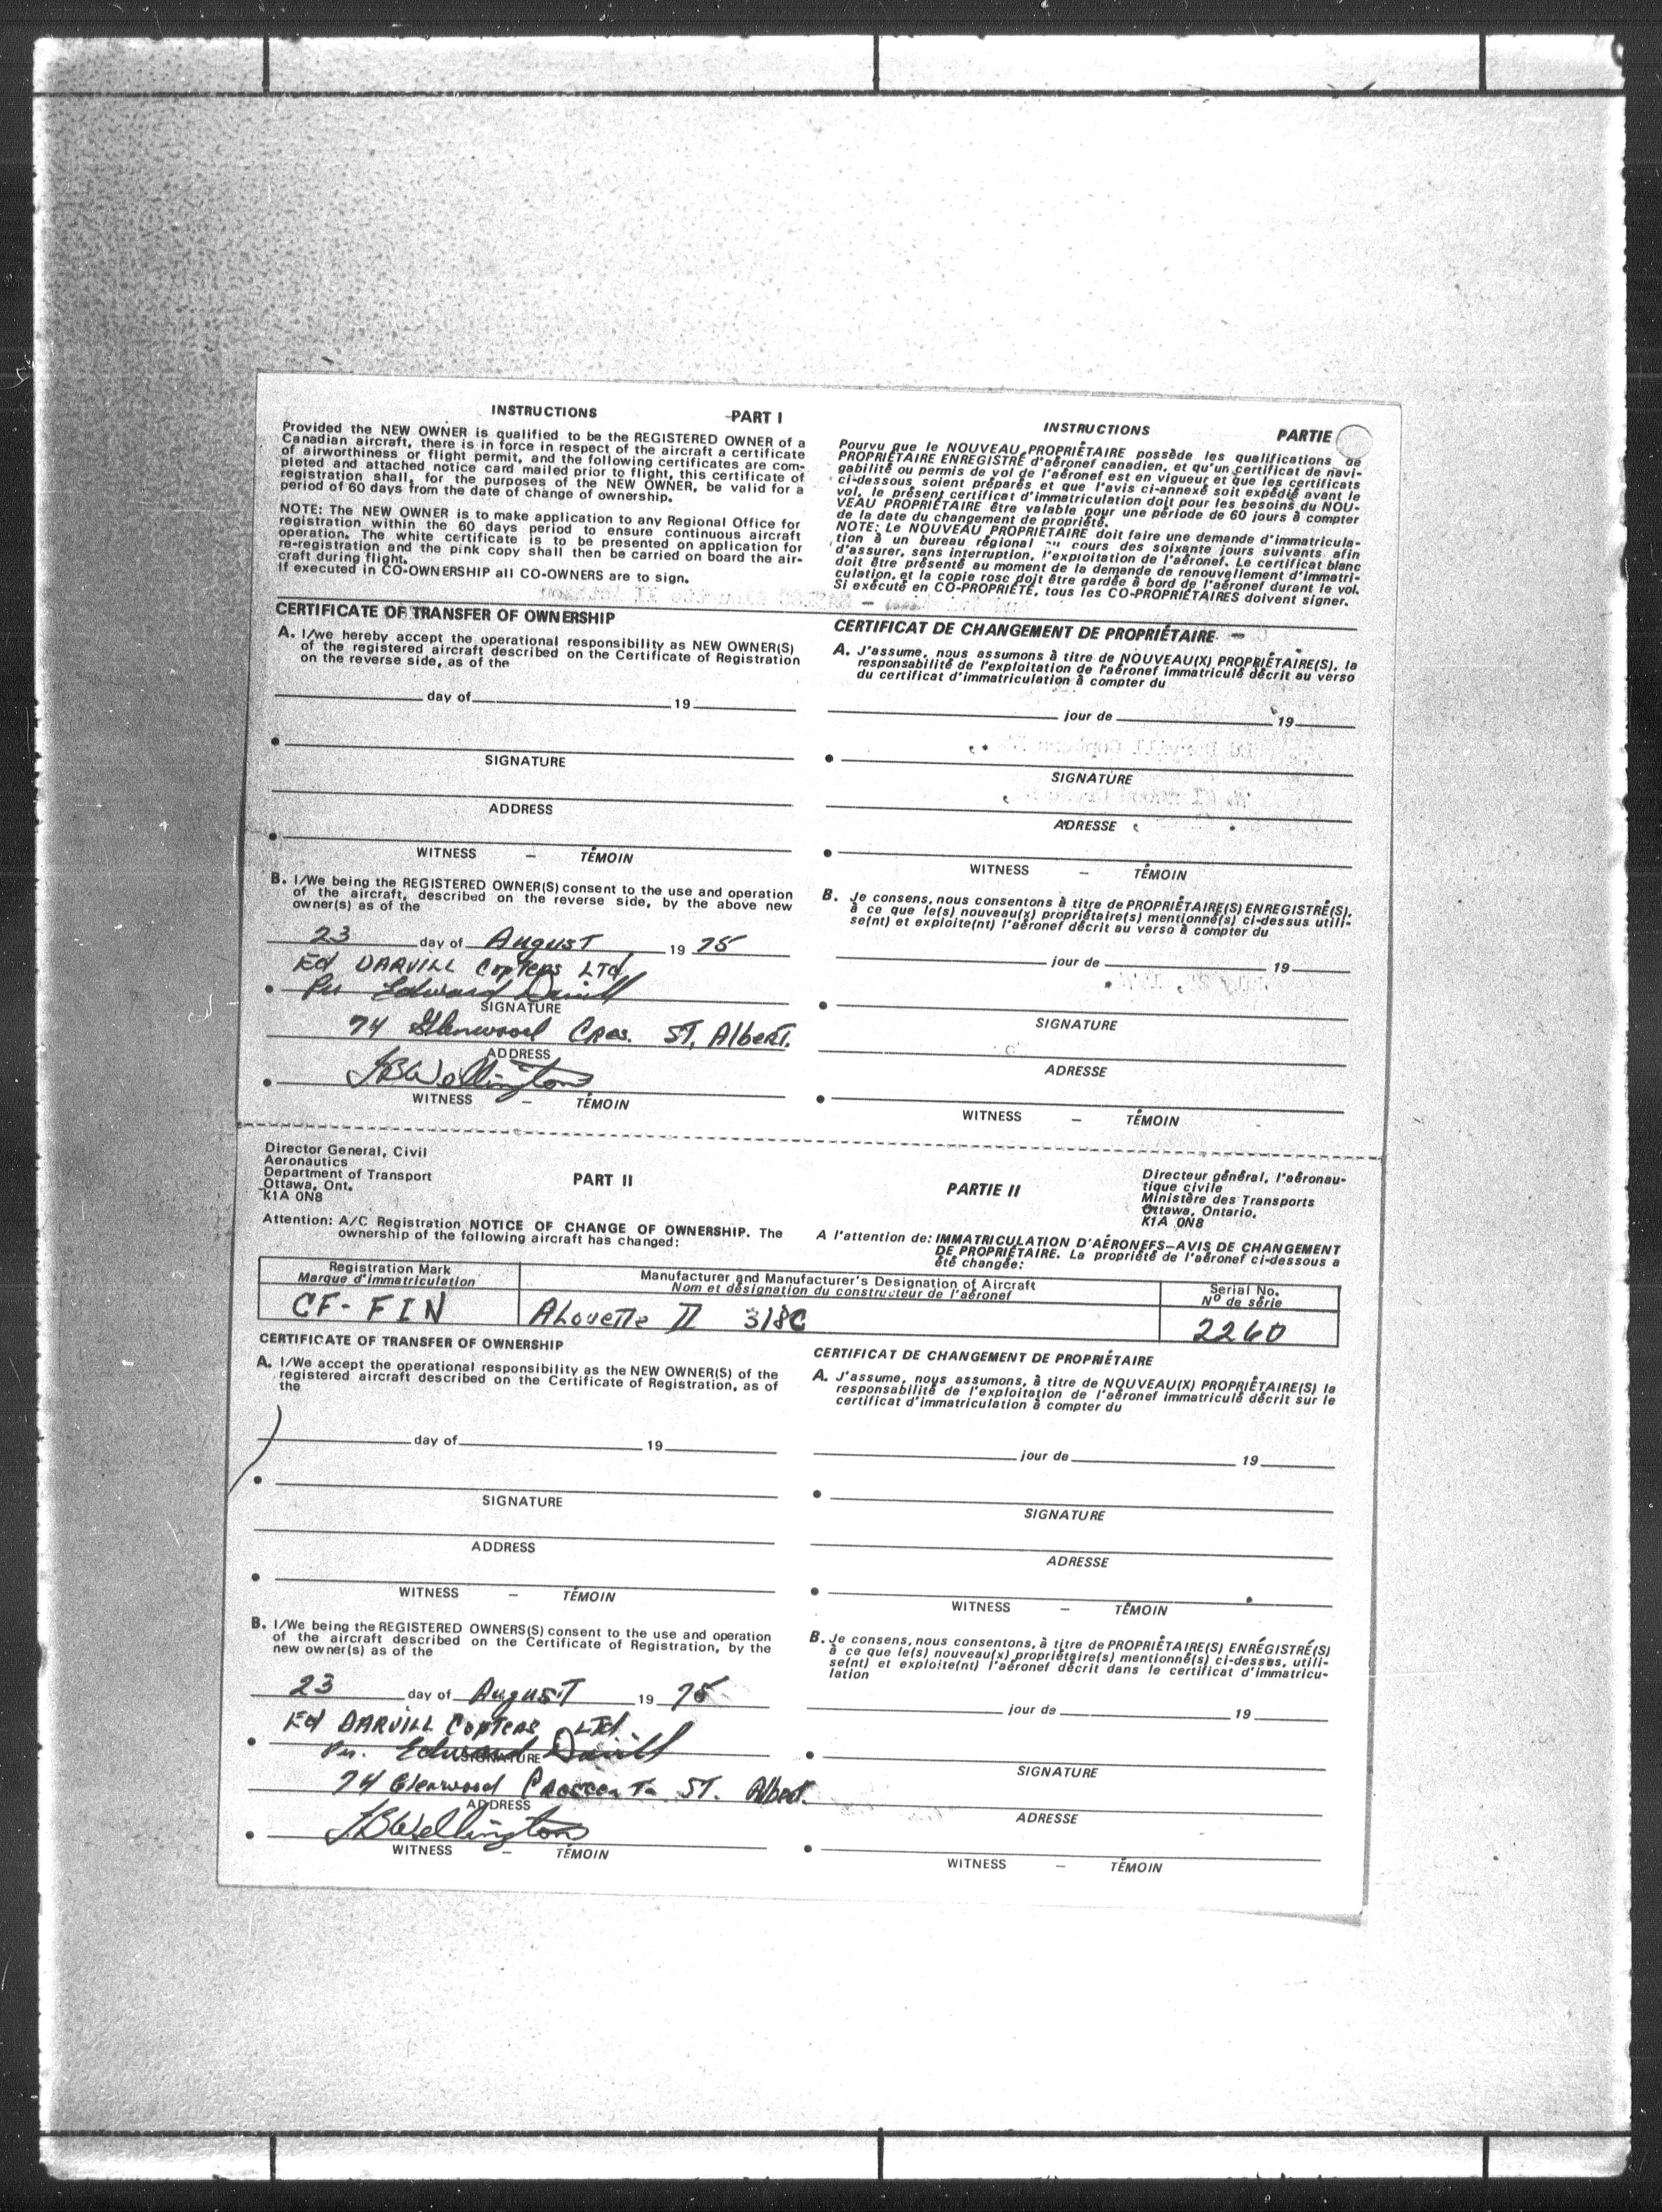 INSTRUCTIONS
PART I
Provided the NEW OWNER is qualified to be the REGISTERED OWNER of a
Canadian aircraft, there is in force in respect of the aircraft a certificate
of airworthiness or flight permit, and the following certificates are com-
pleted and attached notice card mailed prior to flight, this certificate of
registration shall, for the purposes of the NEW OWNER, be valid for a
period of 60 days from the date of change of ownership.
NOTE: The NEW OWNER is to make application to any Regional Office for
registration within the 60 days period to ensure continuous aircraft
operation. The white certificate is to be presented on application for
re-registration and the pink copy shall then be carried on board the air-
craft during flight.
If executed in CO-OWNERSHIP all CO-OWNERS are to sign.
INSTRUCTIONS
PARTIE
Pourvu que le NOUVEAU PROPRIÉTAIRE possède les qualifications de
PROPRIÉTAIRE ENREGISTRÉ d'aéronef canadien, et qu'un certificat de navi-
gabilité ou permis de vol de l'aéronef est en vigueur et que les certificats
ci-dessous soient préparés et que l'avis ci-annexé soit expédié avant le
vol, le présent certificat d'immatriculation doit pour les besoins du NOU-
VEAU PROPRIÉTAIRE être valable pour une période de 60 jours à compter
de la date du changement de propriété.
NOTE: Le NOUVEAU PROPRIÉTAIRE doit faire une demande d'immatricula-
tion à un bureau régional cours des soixante jours suivants afin
d'assurer, sans interruption, l'exploitation de l'aéronef. Le certificat blanc
doit être présenté au moment de la demande de renouvellement d'immatri-
culation, et la copie rose doit être gardée à bord de l'aéronef durant le vol.
Si exécuté en CO-PROPRIÉTÉ, tous les CO-PROPRIÉTAIRES doivent signer.
CERTIFICATE OF TRANSFER OF OWNERSHIP
A. I/we hereby accept the operational responsibility as NEW OWNER(S)
of the registered aircraft described on the Certificate of Registration
on the reverse side, as of the
day of 19
SIGNATURE
ADDRESS
WITNESS – TÉMOIN
B. I/We being the REGISTERED OWNER(S) consent to the use and operation
of the aircraft, described on the reverse side, by the above new
owner(s) as of the
23 day of August 19 75
Ed DARVILL Copters LTd
Per Edward Darvill
SIGNATURE
74 Glenwood Cres. ST. Albert.
ADDRESS
JBWellington
WITNESS – TÉMOIN
CERTIFICAT DE CHANGEMENT DE PROPRIÉTAIRE
A. J'assume, nous assumons à titre de NOUVEAU(X) PROPRIÉTAIRE(S), la
responsabilité de l'exploitation de l'aéronef immatriculé décrit au verso
du certificat d'immatriculation à compter du
jour de 19
SIGNATURE
ADRESSE
WITNESS – TÉMOIN
B. Je consens, nous consentons à titre de PROPRIÉTAIRE(S) ENREGISTRÉ(S),
à ce que le(s) nouveau(x) propriétaire(s) mentionné(s) ci-dessus utili-
se(nt) et exploite(nt) l'aéronef décrit au verso à compter du
jour de 19
SIGNATURE
ADRESSE
WITNESS – TÉMOIN
Director General, Civil
Aeronautics
Department of Transport
Ottawa, Ont.
K1A 0N8
PART II
PARTIE II
Directeur général, l'aéronau-
tique civile
Ministère des Transports
Ottawa, Ontario,
K1A 0N8
Attention: A/C Registration NOTICE OF CHANGE OF OWNERSHIP. The
ownership of the following aircraft has changed:
A l'attention de: IMMATRICULATION D'AÉRONEFS–AVIS DE CHANGEMENT
DE PROPRIÉTAIRE. La propriété de l'aéronef ci-dessous a
été changée:
Registration Mark
Marque d'immatriculation
Manufacturer and Manufacturer's Designation of Aircraft
Nom et désignation du constructeur de l'aéronef
Serial No.
Nº de série
CF-FIN
ALouette II 318C
2260
CERTIFICATE OF TRANSFER OF OWNERSHIP
A. I/We accept the operational responsibility as the NEW OWNER(S) of the
registered aircraft described on the Certificate of Registration, as of
the
day of 19
SIGNATURE
ADDRESS
WITNESS – TÉMOIN
B. I/We being the REGISTERED OWNERS(S) consent to the use and operation
of the aircraft described on the Certificate of Registration, by the
new owner(s) as of the
23 day of August 19 75
Ed DARVILL Copters LTd.
Per. Edward Darvill
SIGNATURE
74 Glenwood ST. Albert.
ADDRESS
JBWellington
WITNESS – TÉMOIN
CERTIFICAT DE CHANGEMENT DE PROPRIÉTAIRE
A. J'assume, nous assumons, à titre de NOUVEAU(X) PROPRIÉTAIRE(S) la
responsabilité de l'exploitation de l'aéronef immatriculé décrit sur le
certificat d'immatriculation à compter du
jour de 19
SIGNATURE
ADRESSE
WITNESS – TÉMOIN
B. Je consens, nous consentons, à titre de PROPRIÉTAIRE(S) ENRÉGISTRÉ(S)
à ce que le(s) nouveau(x) propriétaire(s) mentionné(s) ci-dessus, utili-
se(nt) et exploite(nt) l'aéronef décrit dans le certificat d'immatricu-
lation
jour de 19
SIGNATURE
ADRESSE
WITNESS – TÉMOIN